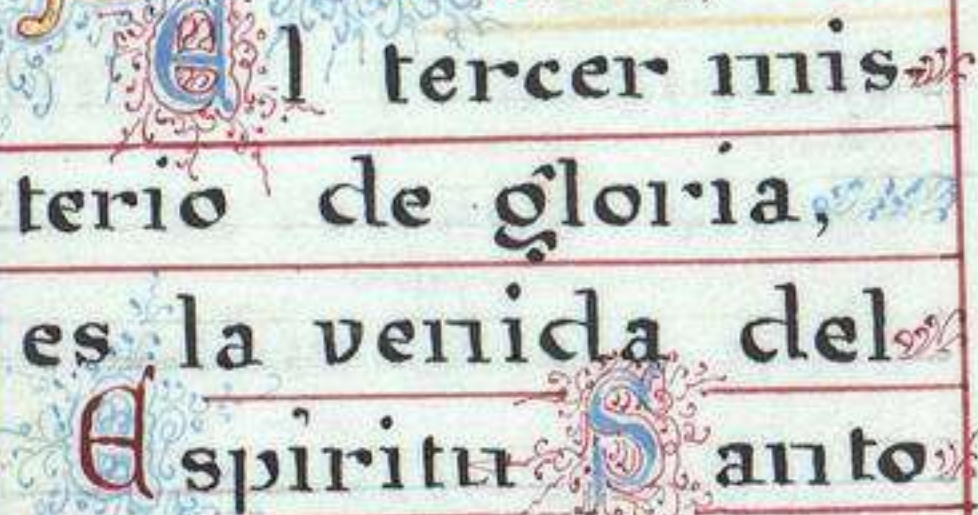 El tercer mis-
terio de gloria,
es la venida del
Espiritu Santo